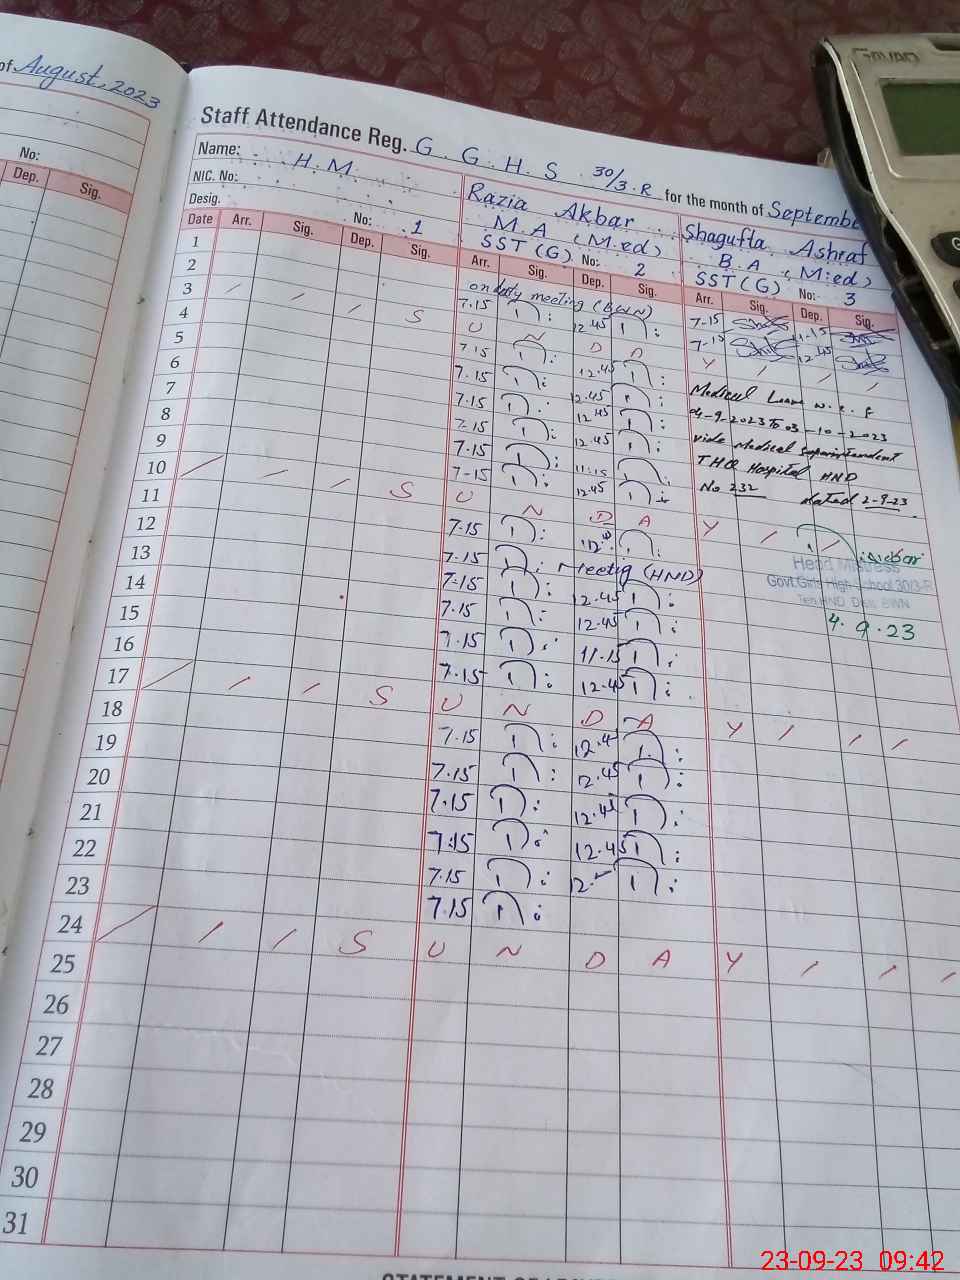 of August, 2023
No:
Dep. Sig.
Staff Attendance Reg. G G H S 30/3.R for the month of Septembe
Name: H.M Razia Akbar Shagufta Ashraf
NIC. No: M.A (M.ed) B.A (M.ed)
Desig. No: 1 SST (G) No: 2 SST (G) No: 3
Date Arr. Sig. Dep. Sig. Arr. Sig. Dep. Sig. Arr. Sig. Dep. Sig.
1 on duty meeting (BWN) 7-15 11-15
2 7.15 12.45 7-15 12.45
3 S U N D A Y
4 7.15 12.45 Medical Leave w.e.f
5 7.15 12.45 04-9-2023 To 03-10-2023
6 7.15 12.45 vide Medical Superintendent
7 7.15 12.45 THQ Hospital HND
8 7.15 11:15 No 232 dated 2-9-23
9 7-15 12.45
10 S U N D A Y
11 7.15 12.
12 7.15 Meetig (HND)
13 7.15 12.45
14 7.15 12.45
15 7.15 11-15
16 7.15 12.45
17 S U N D A Y
18 7.15 12.45
19 7.15 12.45
20 7.15 12.45
21 7:15 12.45
22 7.15 12.
23 7.15
24 S U N D A Y
25
26
27
28
29
30
31
Head Mistress
Govt.Girls High School 30/3-R
Teh HND Dist: BWN
4.9.23
23-09-23 09:42